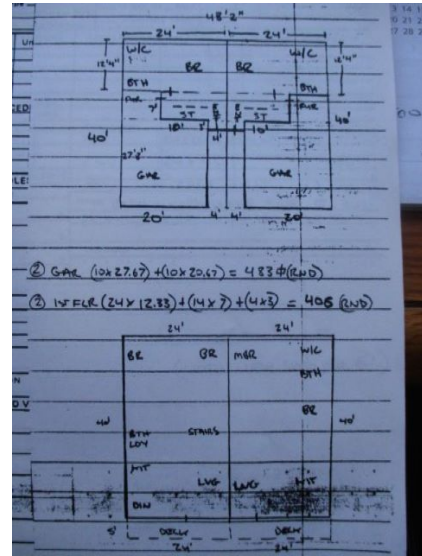 48'2"
24' 24'
W/C W/C
12'4" BR BR 12'4"
BTH BTH
PWR PWR
7'
ST ST
10' 10'
40' 4' 40'
27'8"
GAR GAR
20' 4' 4' 20'
② GAR (10x27.67)+(10x20.67) = 483 ⌀ (RND)
② 1ST FLR (24x12.33)+(14x7)+(4x3) = 406 (RND)
24' 24'
BR BR MBR W/C
BTH
BR
40' 40'
BTH STAIRS
LDY
KIT LVG LVG KIT
DIN
5' DECK DECK
24' 24'